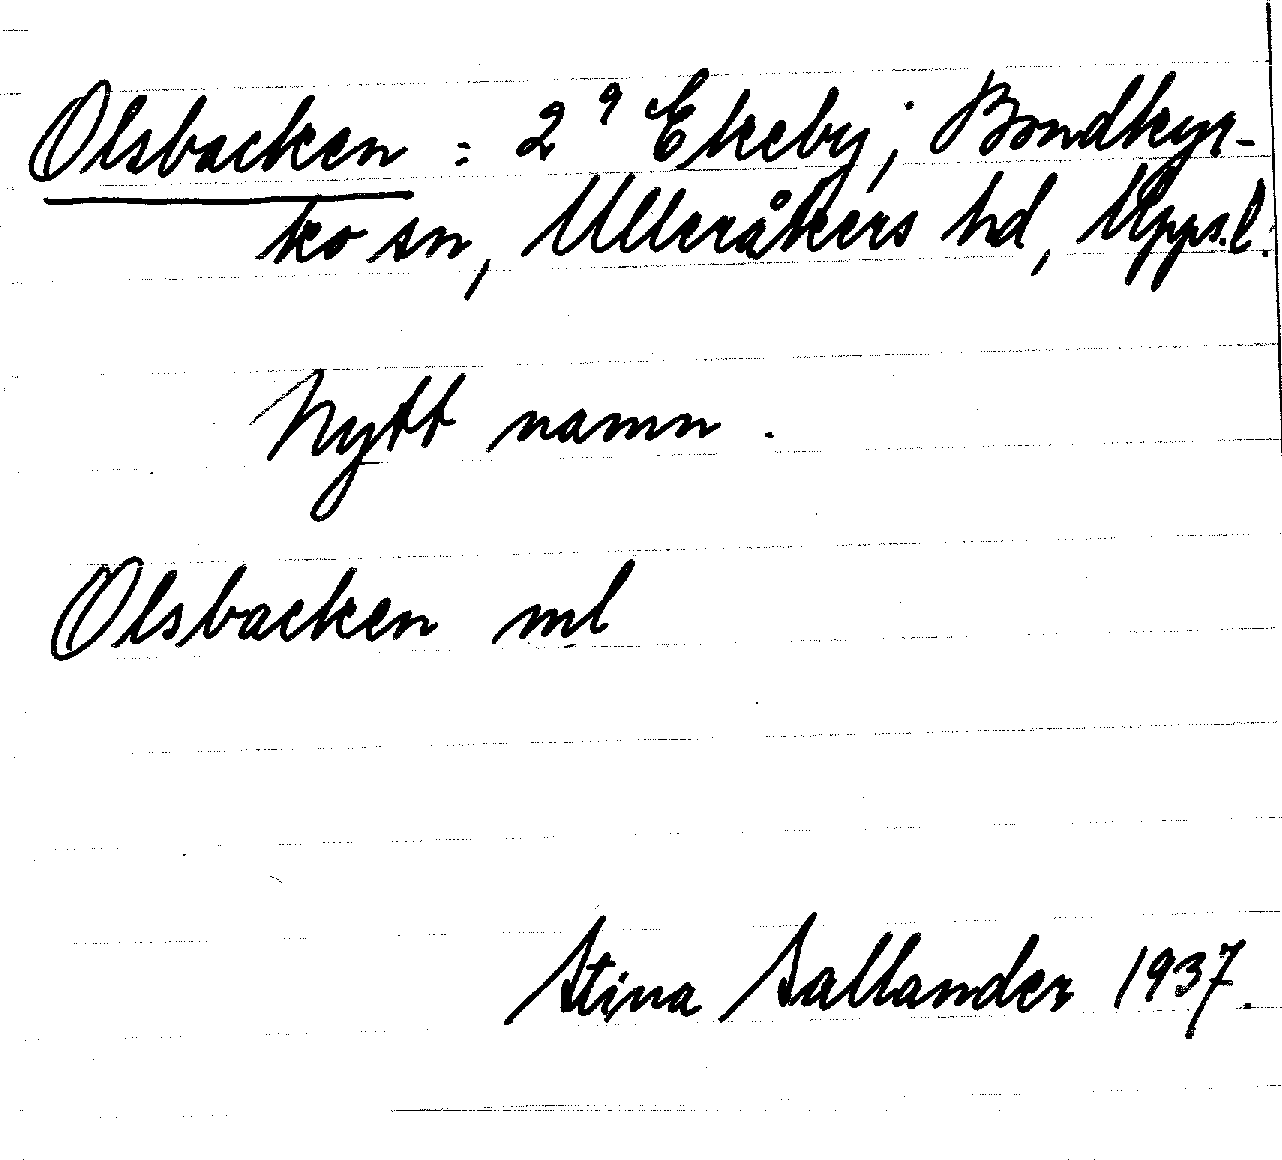 Olsbacken : 2⁹ Ekeby; Bondkyr-
ko sn, Ulleråkers hd, Upps.l.
Nytt namn.
Olsbacken ml
Stina Sallander 1937.